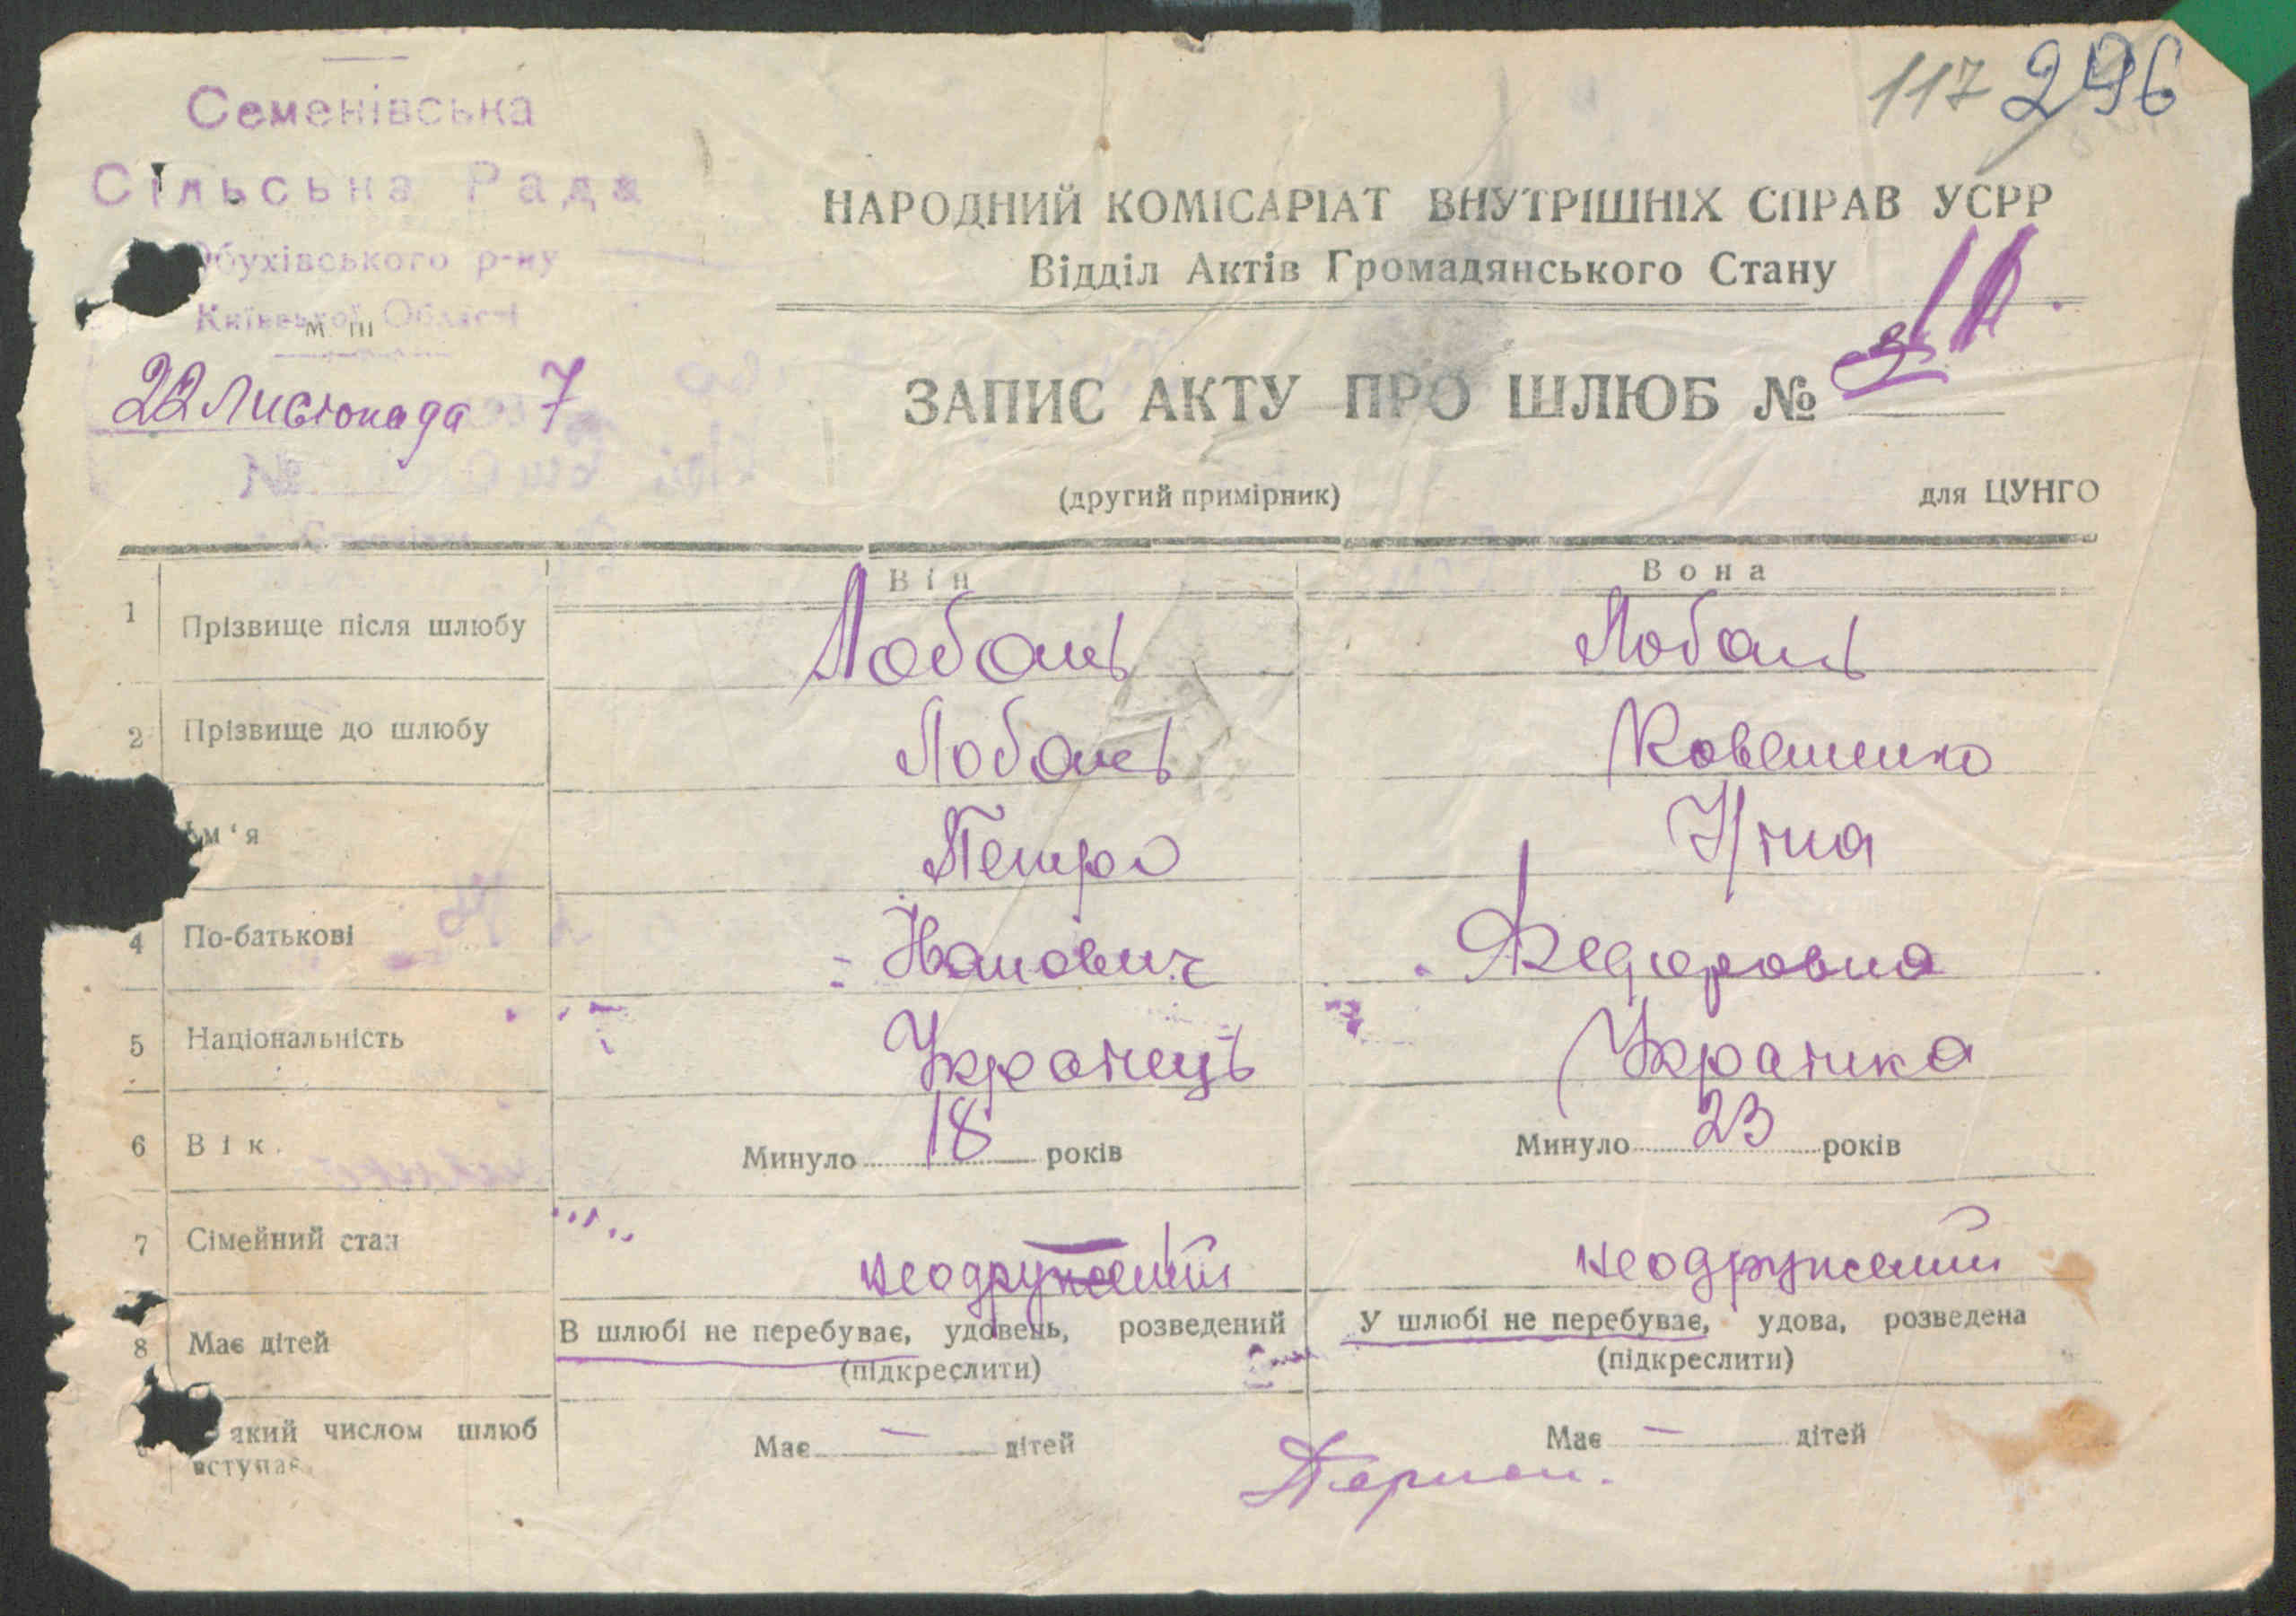 117 296
Семенівська
Сільська Рада
Обухівського р-ну
Київської Області
м. п.
22 Листопада 7
НАРОДНИЙ КОМІСАРІАТ ВНУТРІШНІХ СПРАВ УСРР
Відділ Актів Громадянського Стану
ЗАПИС АКТУ ПРО ШЛЮБ №
(другий примірник)
для ЦУНГО
Він Вона
1 Прізвище після шлюбу Лобань Лобань
2 Прізвище до шлюбу Лобань
м'я Петро Ніна
4 По-батькові Іванович Федоровна
5 Національність Українець Українка
6 Вік. Минуло 18 років Минуло 23 років
7 Сімейний стан неодружений неодружений
8 Має дітей В шлюбі не перебуває, удовець, розведений У шлюбі не перебуває, удова, розведена
(підкреслити) (підкреслити)
який числом шлюб Має – дітей Має – дітей
вступає